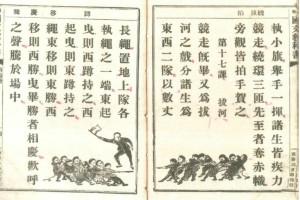 執小旗舉手一揮諸生皆疾力
競走繞環三匝先至者奪赤幟
旁觀皆拍手賀之
第十七課 拔河
競走既畢又爲拔
河之戲分諸生爲
東西二隊以數丈
長繩置地上隊各
執繩之一端東起
曳則西蹲持之西
起曳則東蹲持之
繩東移則東勝西
移則西勝曳畢勝者相慶歡呼
之聲騰於場中